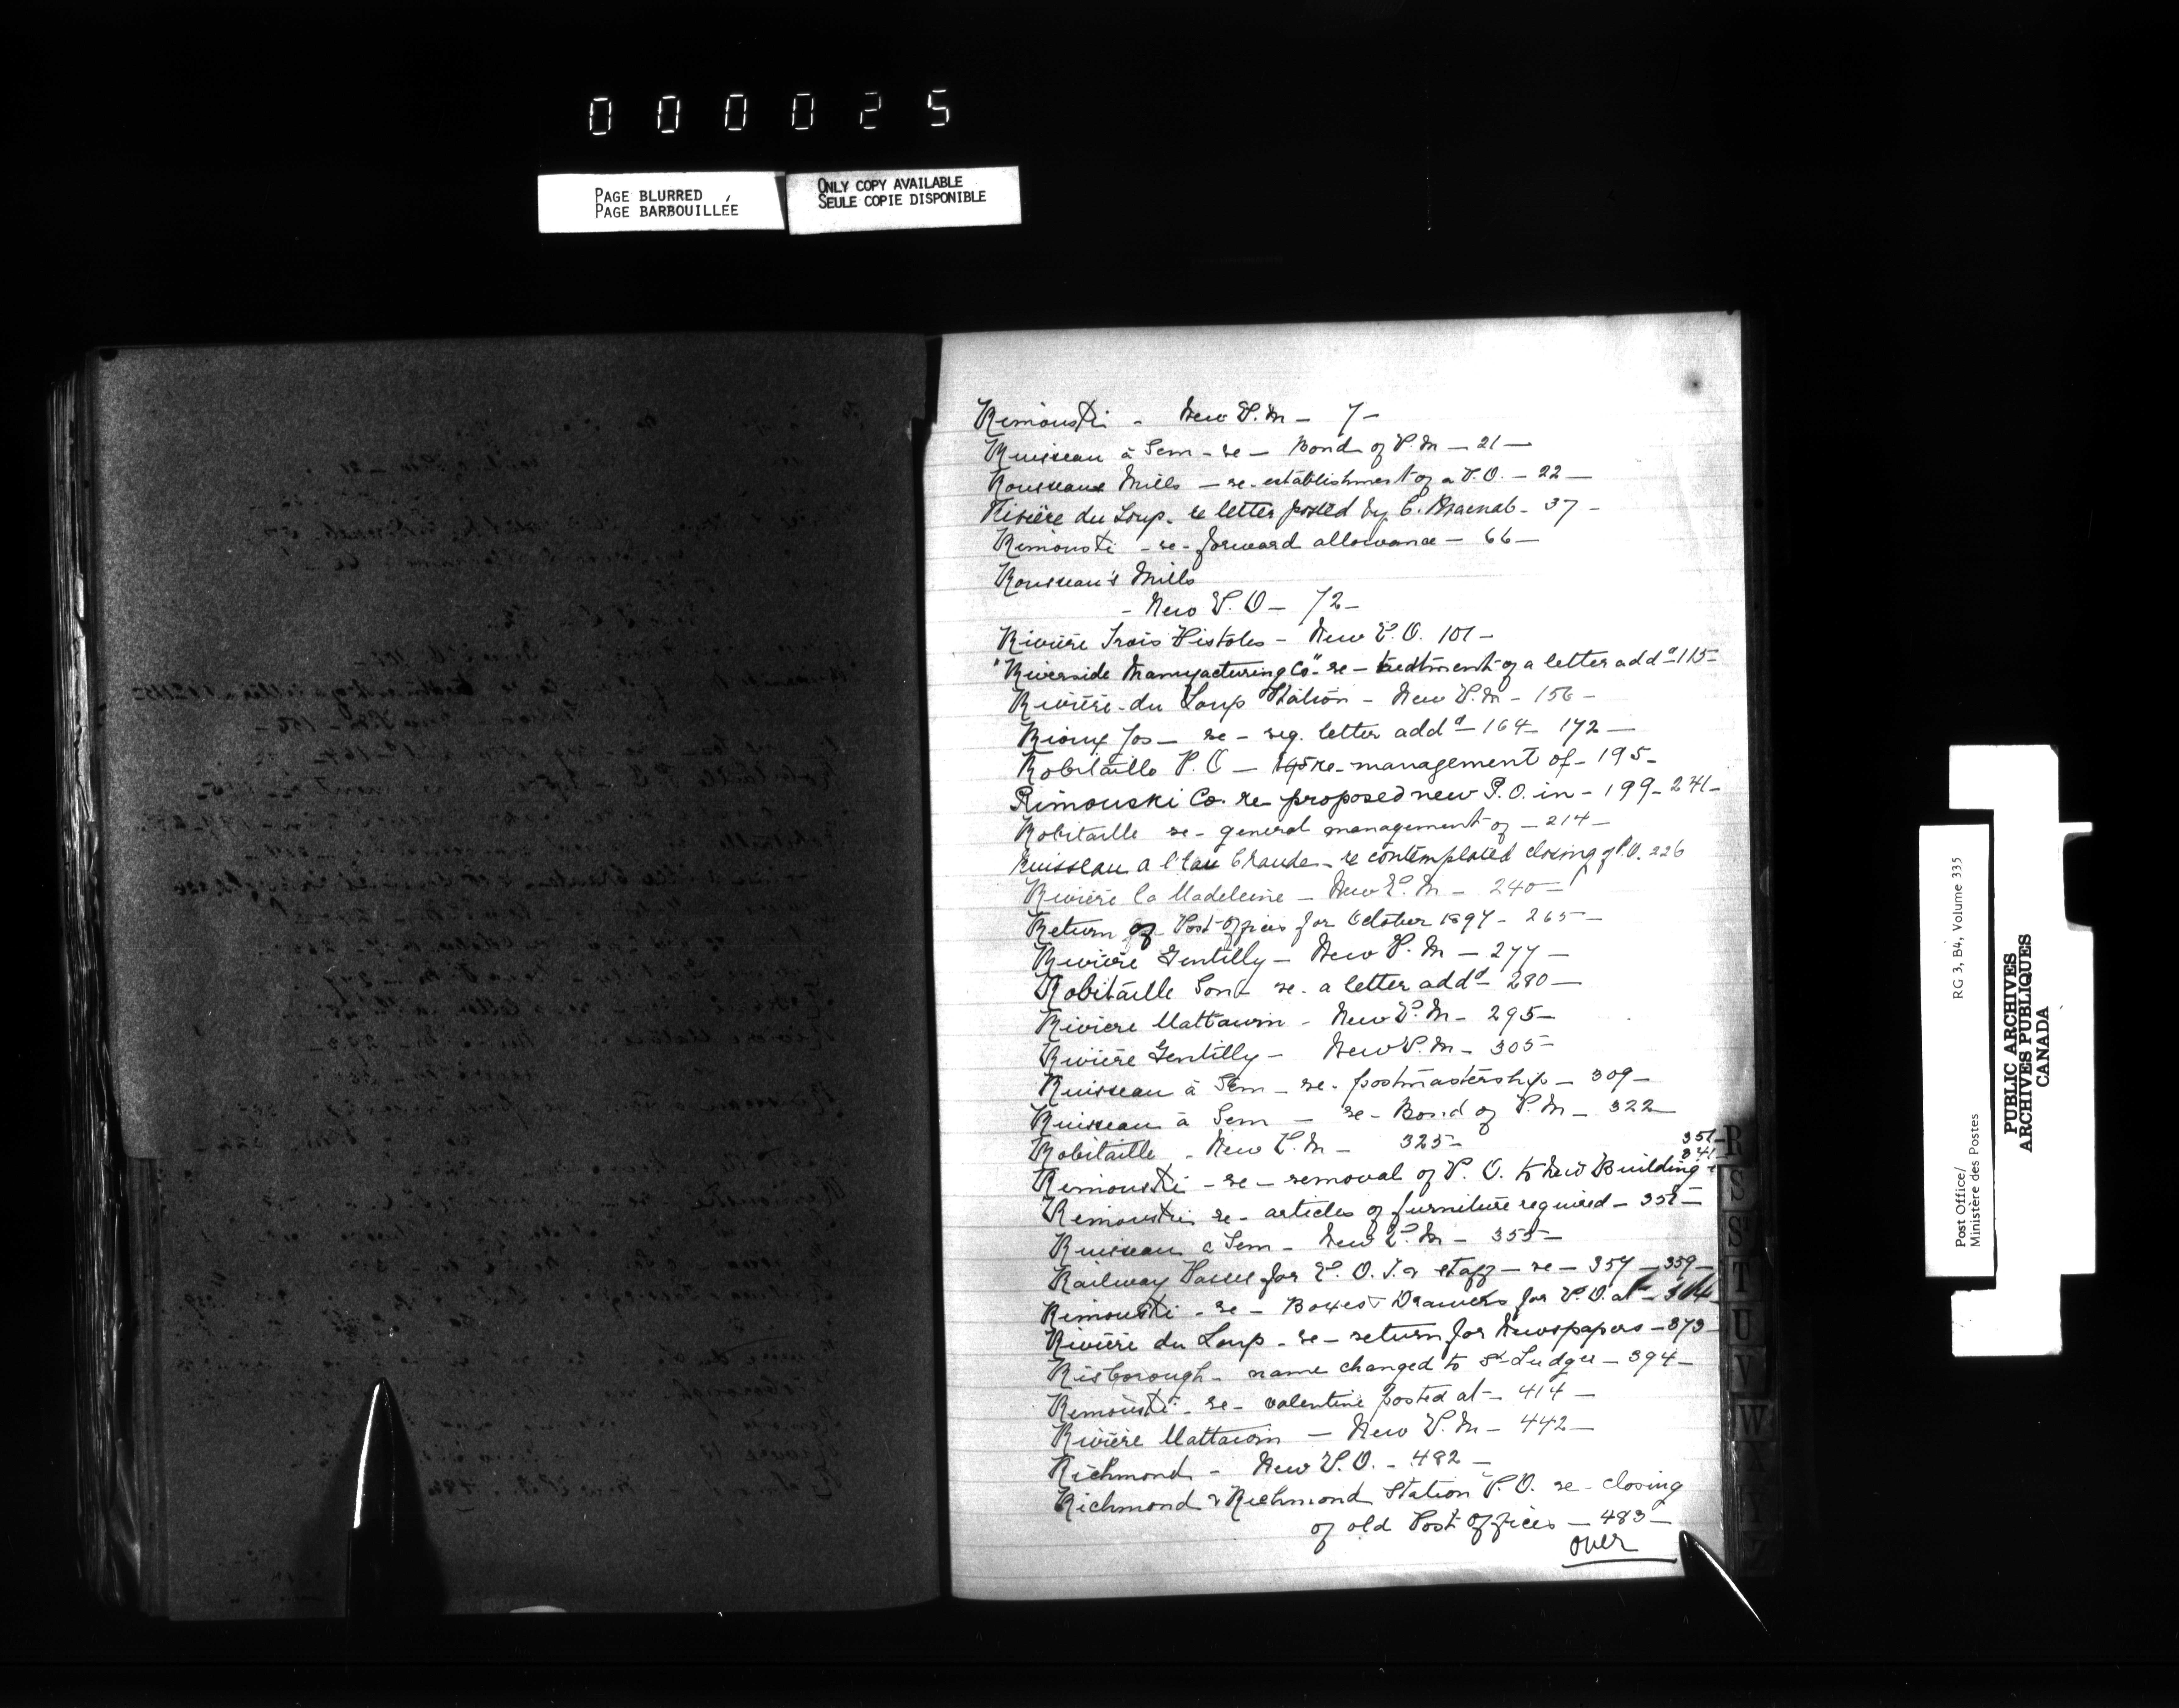 000025
PAGE BLURRED
PAGE BARBOUILLÉE
ONLY COPY AVAILABLE
SEULE COPIE DISPONIBLE
Rimouski - New P.M - 7 -
Ruisseau à Sem - re - Bond of P.M - 21 -
Rousseau Mills - re - establishment of a P.O. - 22 -
Rivière du Loup - re letter posted by C. Macnab - 37 -
Rimouski - re - forward allowance - 66 -
Rousseau's Mills
- New P.O - 72 -
Rivière Trois Pistoles - New P.O. 101 -
"Riverside Manufacturing Co" re - treatment of a letter addd - 115 -
Rivière-du Loup Station - New P.M - 156 -
Rioux Jos - re - reg. letter addd - 164 - 172 -
Robitaille P.O - re - management of - 195 -
Rimouski Co. re proposed new P.O. in - 199 - 241 -
Robitaille re - general management of - 214 -
Ruisseau a l'Eau Chaude - re contemplated closing of P.O. 226
Rivière la Madeleine - New P.M - 240 -
Return of Post Offices for October 1897 - 265 -
Rivière Gentilly - New P.M - 277 -
Robitaille Son - re - a letter addd - 280 -
Riviere Mattawin - New P.M - 295 -
Rivière Gentilly - New P.M - 305 -
Ruisseau à Sem - re - postmastership - 309 -
Ruisseau à Sem - re - Bond of P.M - 322 -
Robitaille - New P.M - 325 -
351 -
341
Rimouski - re - removal of P.O. to New Building
Rimouski re - articles of furniture required - 351 -
Ruisseau a Sem - New P.M - 355 -
Railway Passes for P.O.I. & staff - re - 357 - 359 -
Rimouski - re - Boxes & Drawers for P.O. at - 364
Rivière du Loup - re - return for Newspapers - 373 -
Risborough - name changed to St Ludger - 394 -
Rimouski - re - valentine posted at - 414 -
Rivière Mattawin - New P.M - 442 -
Richmond - New P.O. - 482 -
Richmond & Richmond Station P.O. re - closing
of old Post Offices - 483 -
over
R
S
St
T
U
V
W
X
Y
Z
Post Office/
Ministère des Postes
RG 3, B4, Volume 335
PUBLIC ARCHIVES
ARCHIVES PUBLIQUES
CANADA